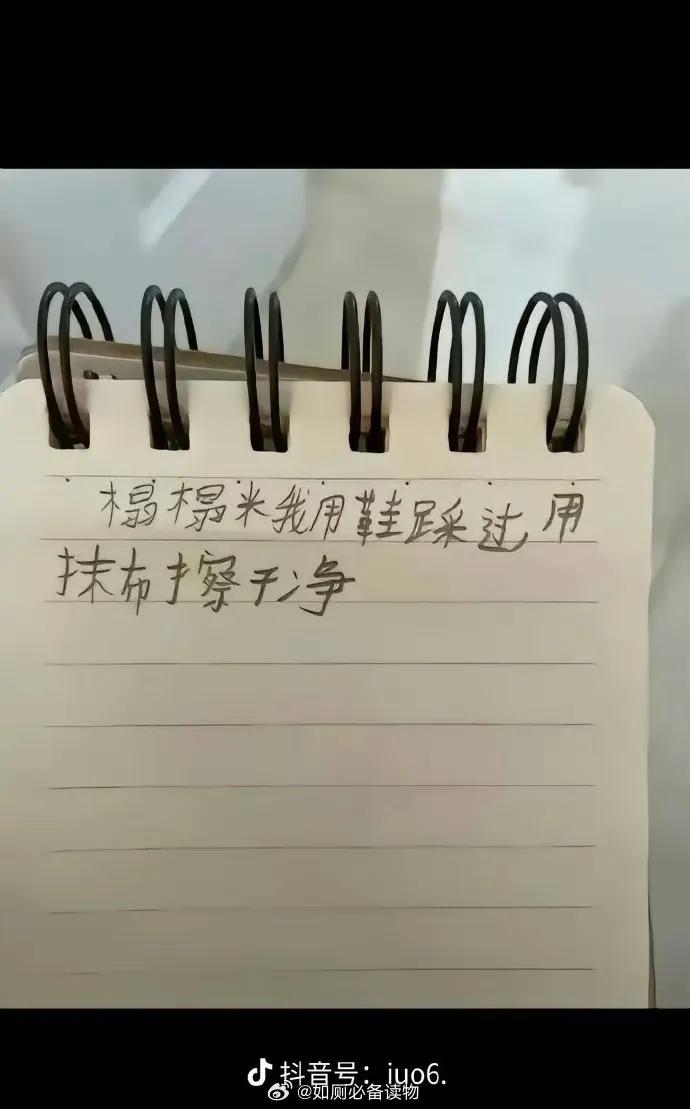 榻榻米我用鞋踩过用
抹布擦干净
抖音号：iuo6.
@如厕必备读物